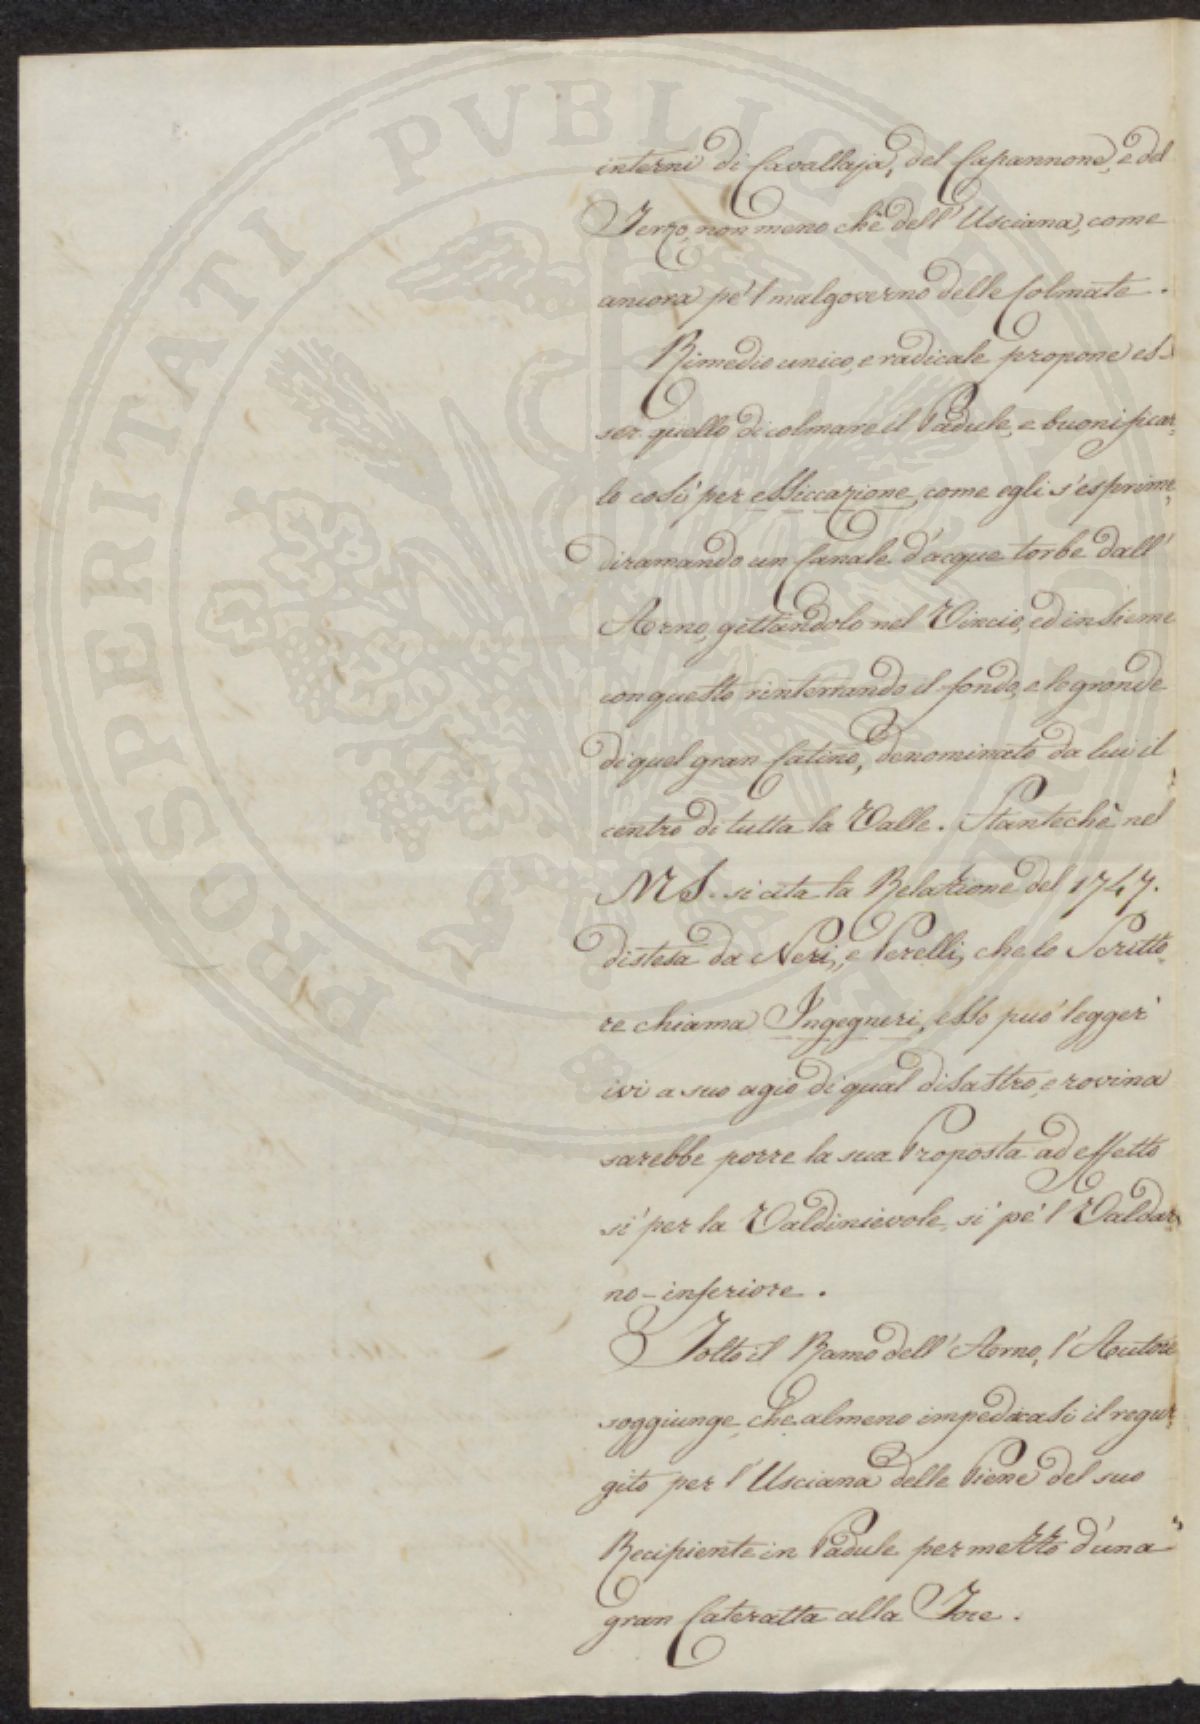 interni di Cavallaja, del Capannone, e del
Terzo, non meno chè dell' Usciana, come
ancora pe 'l malgoverno delle Colmate.
Rimedio unico, e radicale propone es-
ser quello di colmare il Padule, e buonificar-
lo così per essiccazione, come egli s'esprime,
diramando un Canale d'acque torbe dall'
Arno, gettandolo nel Vincio, ed insieme
con questo rinterrando il fondo, e le gronde
di quel gran Catino, denominato da lui il
centro di tutta la Valle. Stantechè nel
MS. si cita la Relazione del 1747.
distesa da Neri, e Perelli, che lo Scritto-
re chiama Ingegneri, esso può legger'
ivi a suo agio di qual disastro, e rovina
sarebbe porre la sua Proposta ad effetto
sì per la Valdinievole, sì pe 'l Valdar-
no-inferiore.
Tolto il Ramo dell' Arno, l' Autore
soggiunge, che almeno impedicasi il regur-
gito per l' Usciana delle Piene del suo
Recipiente in Padule per mezzo d'una
gran Cateratta alla Foce.
PROSPERITATI PVBLICAE